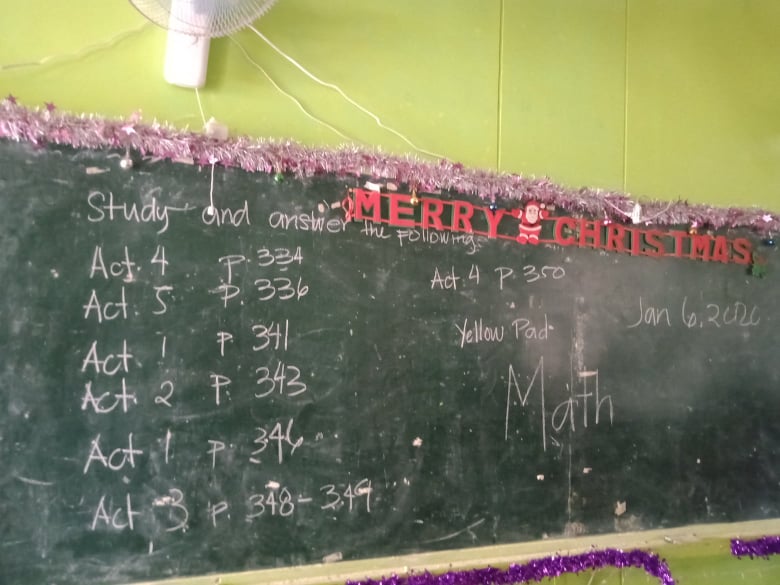 MERRY CHRISTMAS
Study and answer the following.
Act. 4 p. 334
Act. 5 p. 336
Act. 1 p. 341
Act. 2 p. 343
Act 1 p. 346
Act 3 p. 348-349
Act. 4 p. 350
Yellow Pad
Math
Jan 6,